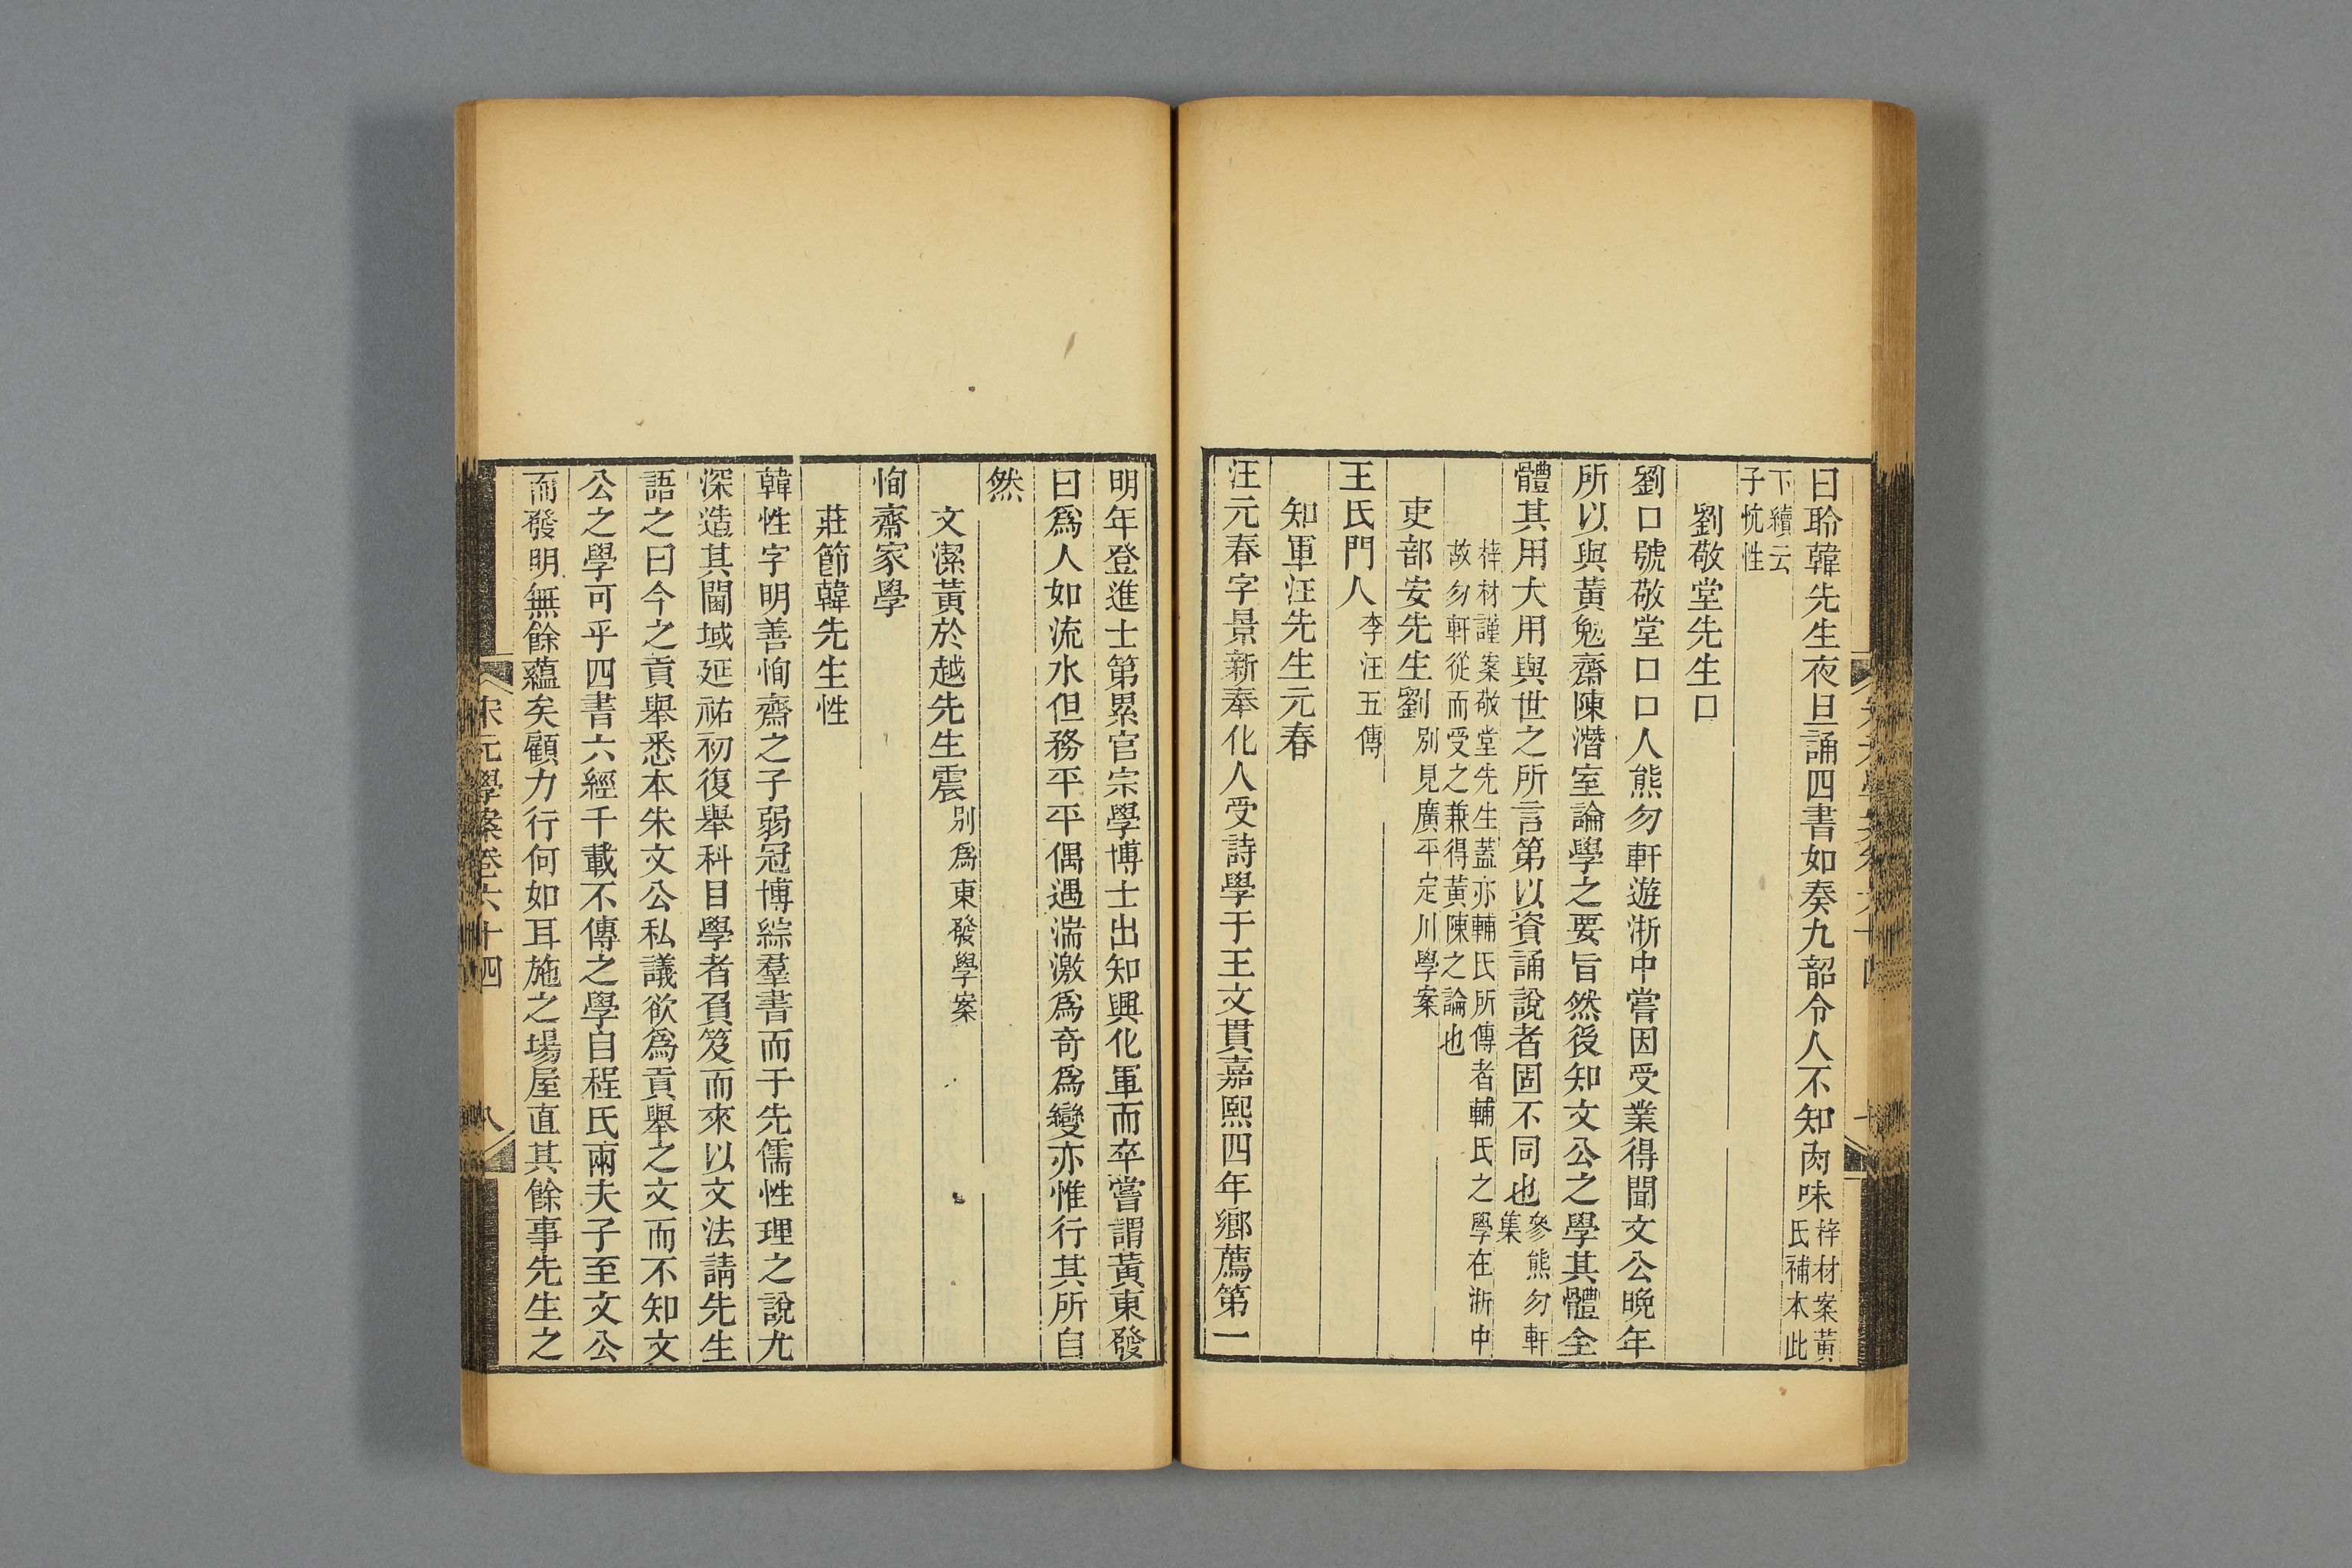 曰聆韓先生夜旦誦四書如奏九韶令人不知肉味梓材案黃氏補本此
下續云子忼性
劉敬堂先生口
劉口號敬堂口口口人熊勿軒遊浙中嘗因受業得聞文公晚年
所以與黃勉齋陳潛室論學之要旨然後知文公之學其體全
體其用大用與世之所言第以資誦說者固不同也參熊勿軒集
梓材謹案敬堂先生蓋亦輔氏所傳者輔氏之學在浙中
故勿軒從而受之兼得黃陳之論也
吏部安先生劉別見廣平定川學案
王氏門人李汪五傳
知軍汪先生元春
汪元春字景新奉化人受詩學于王文貫嘉熙四年鄉薦第一
明年登進士第累官宗學博士出知興化軍而卒嘗謂黃東發
曰爲人如流水但務平平偶遇湍激爲奇爲變亦惟行其所自
然
文潔黃於越先生震別爲東發學案
恂齋家學
莊節韓先生性
韓性字明善恂齋之子弱冠博綜羣書而于先儒性理之說尤
深造其閫域延祐初復舉科目學者負笈而來以文法請先生
語之曰今之貢舉悉本朱文公私議欲爲貢舉之文而不知文
公之學可乎四書六經千載不傳之學自程氏兩夫子至文公
而發明無餘蘊矣顧力行何如耳施之場屋直其餘事先生之
宋元學案卷六十四
八